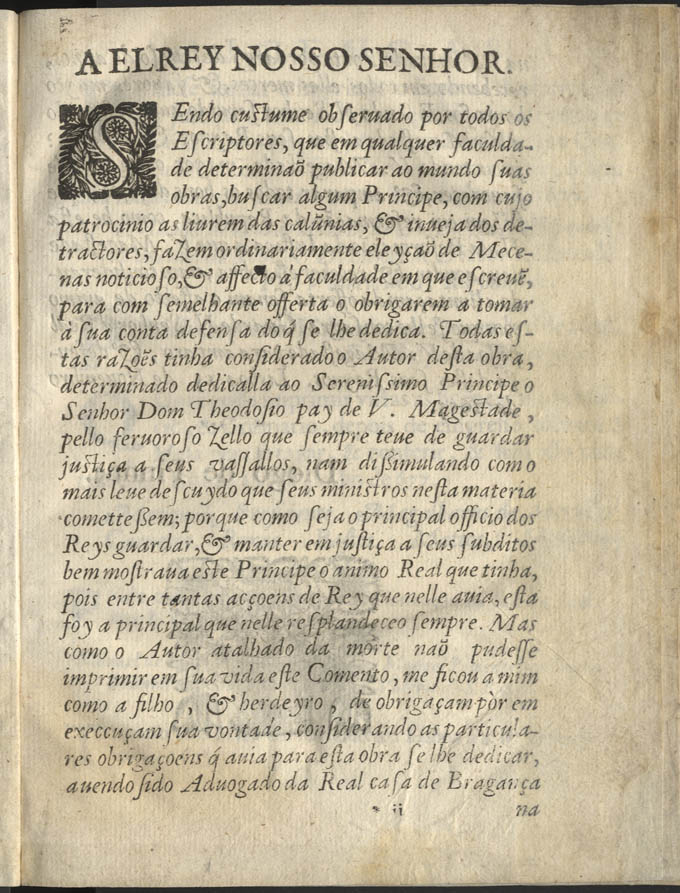 A ELREY NOSSO SENHOR.
SEndo cuſtume obſeruado por todos os
Eſcriptores, que em qualquer faculda-
de determinaõ publicar ao mundo ſuas
obras, buſcar algum Principe, com cujo
patrocinio as liurem das calũnias, & inueja dos de-
tractores, fazem ordinariamente eleyçaõ de Mece-
nas noticioſo, & affecto á faculdade em que eſcreuẽ,
para com ſemelhante offerta o obrigarem a tomar
à ſua conta defenſa do q́ ſe lhe dedica. Todas eſ-
tas razoẽs tinha conſiderado o Autor deſta obra,
determinado dedicalla ao Sereniſsimo Principe o
Senhor Dom Theodoſio pay de V. Mageſtade,
pello feruoroſo zello que ſempre teue de guardar
juſtiça a ſeus vaſſallos, nam diſsimulando com o
mais leue deſcuydo que ſeus miniſtros neſta materia
cometteßem; porque como ſeja o principal officio dos
Reys guardar, & manter em juſtiça a ſeus ſubditos
bem moſtraua eſte Principe o animo Real que tinha,
pois entre tantas acçoens de Rey que nelle auia, eſta
foy a principal que nelle reſplandeceo ſempre. Mas
como o Autor atalhado da morte naõ pudeſſe
imprimir em ſua vida eſte Comento, me ficou a mim
como a filho, & herdeyro, de obrigaçam pòr em
execcuçam ſua vontade, conſiderando as particula-
res obrigaçoens q́ auia para eſta obra ſe lhe dedicar,
auendo ſido Aduogado da Real caſa de Bragança
* ij na